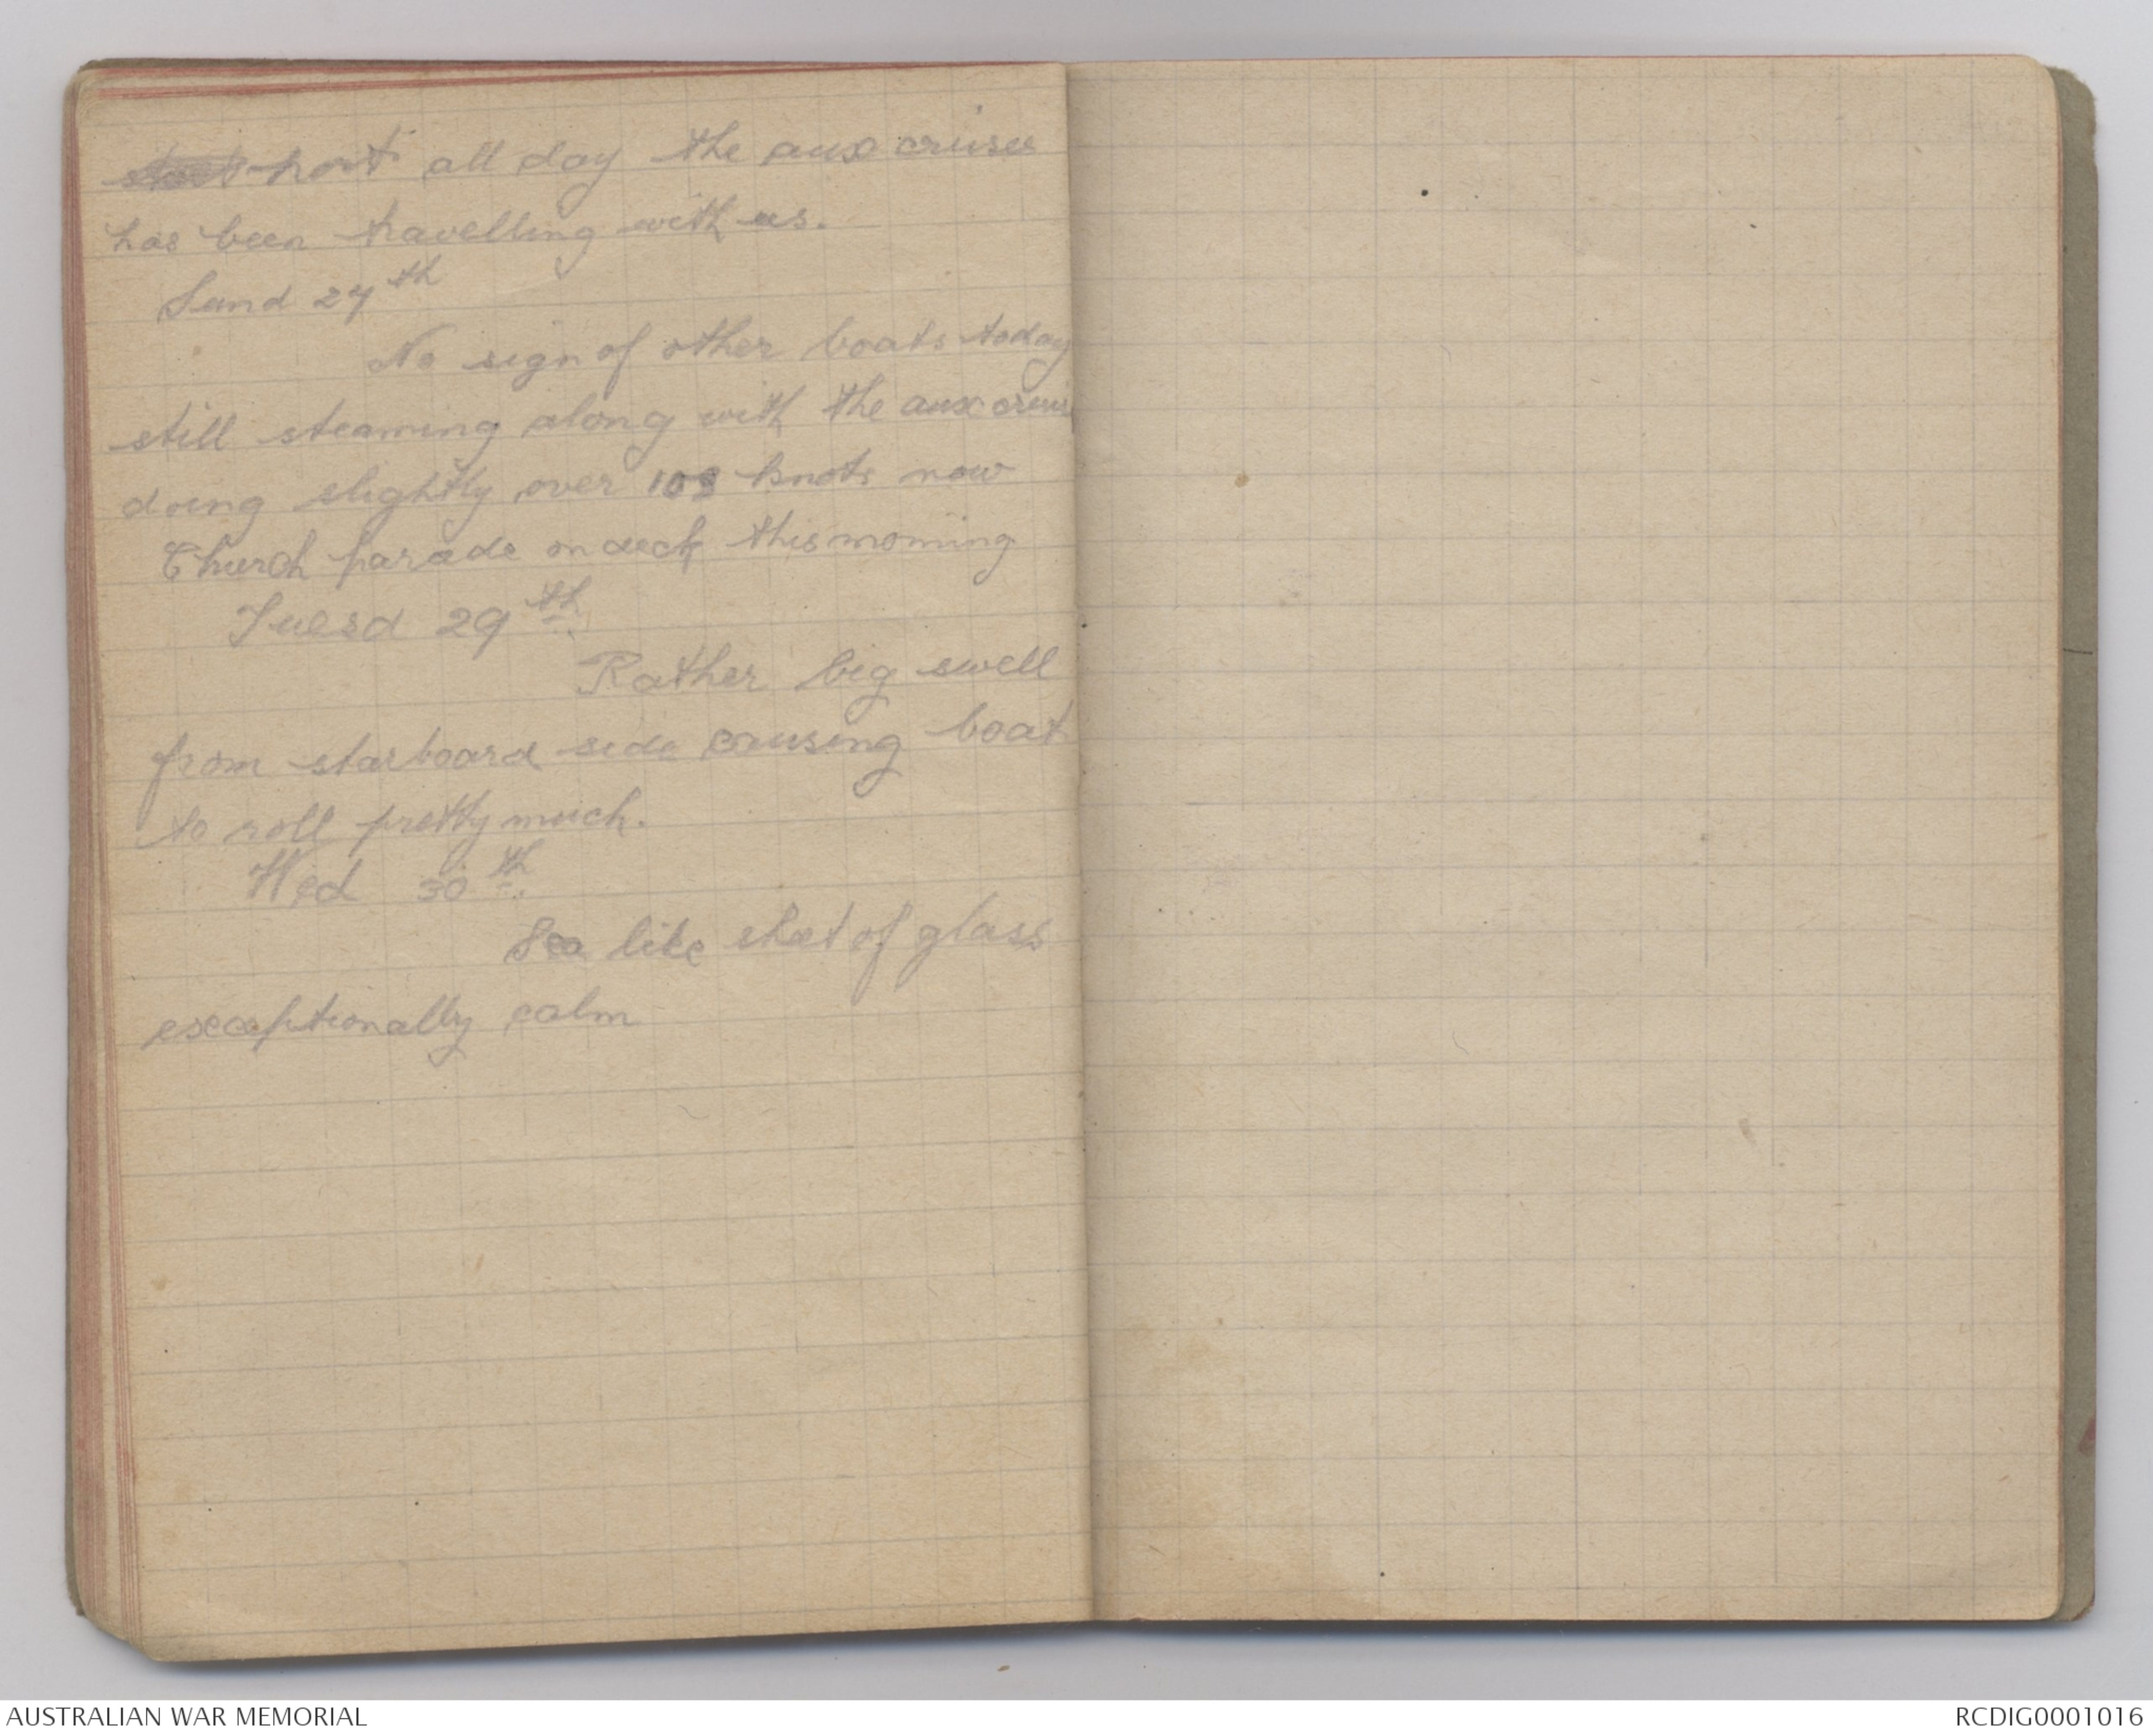 port all day the aux cruiser
has been travelling with us.
Sund 27th
No sign of other boats today
still steaming along with the aux cruis
doing slightly over 10 knots now
Church parade on deck this morning
Tuesd 29th.
Rather big swell
from starboard side causing boat
to roll pretty much.
Wed 30th.
Sea like sheet of glass
exceptionally calm
AUSTRALIAN WAR MEMORIAL
RCDIG0001016